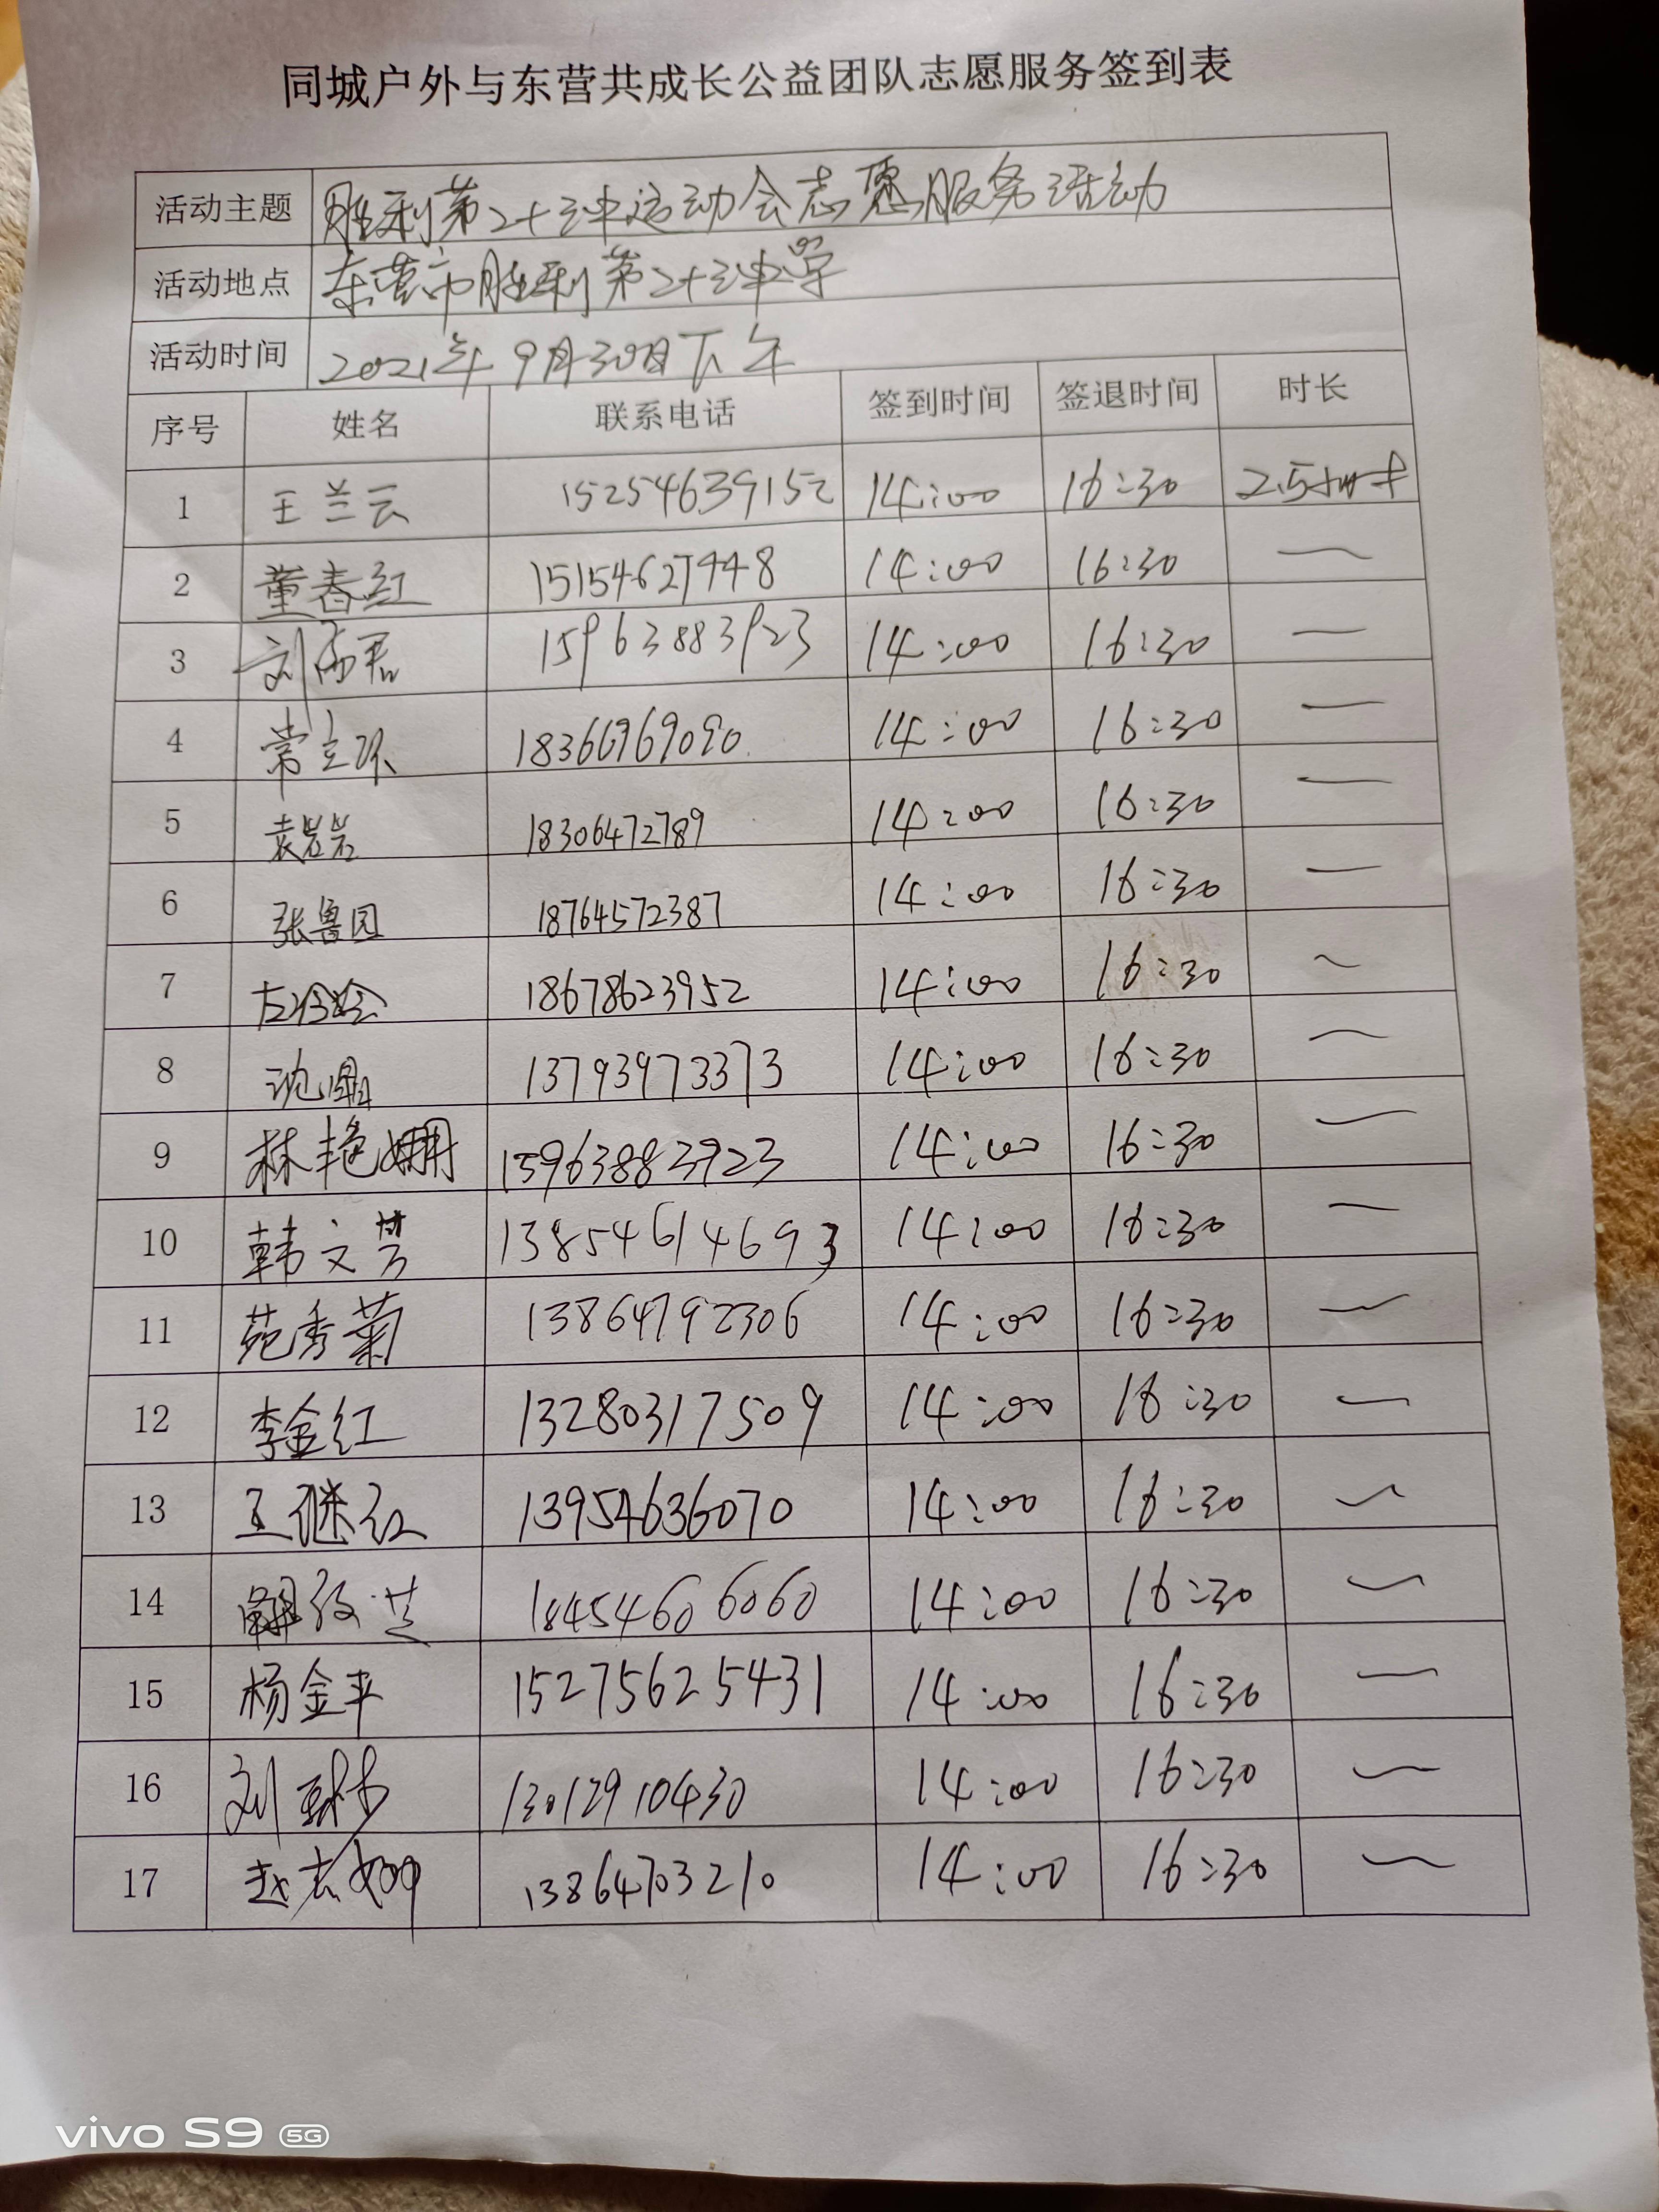 同城户外与东营共成长公益团队志愿服务签到表
活动主题 胜利第二十三中运动会志愿服务活动
活动地点 东营市胜利第二十三中学
活动时间 2021年9月30日下午
序号 姓名 联系电话 签到时间 签退时间 时长
1 王兰云 15254639152 14:00 16:30 2.5小时
2 董春红 15154627448 14:00 16:30 —
3 刘 15963883923 14:00 16:30 —
4 常立环 18366969090 14:00 16:30 —
5 袁岩岩 18306472789 14:00 16:30 —
6 张鲁园 18764572387 14:00 16:30 —
7 18678623952 14:00 16:30 ~
8 沈 13793973373 14:00 16:30 —
9 林艳姗 15963883923 14:00 16:30 —
10 韩文芳 13854614693 14:00 16:30 —
11 苑秀菊 13864792306 14:00 16:30 —
12 李金红 13280317509 14:00 16:30 —
13 王继红 13954636070 14:00 16:30 —
14 18454606060 14:00 16:30 —
15 杨金平 15275625431 14:00 16:30 —
16 刘 13012910430 14:00 16:30 —
17 赵 13864703210 14:00 16:30 —
vivo S9 5G